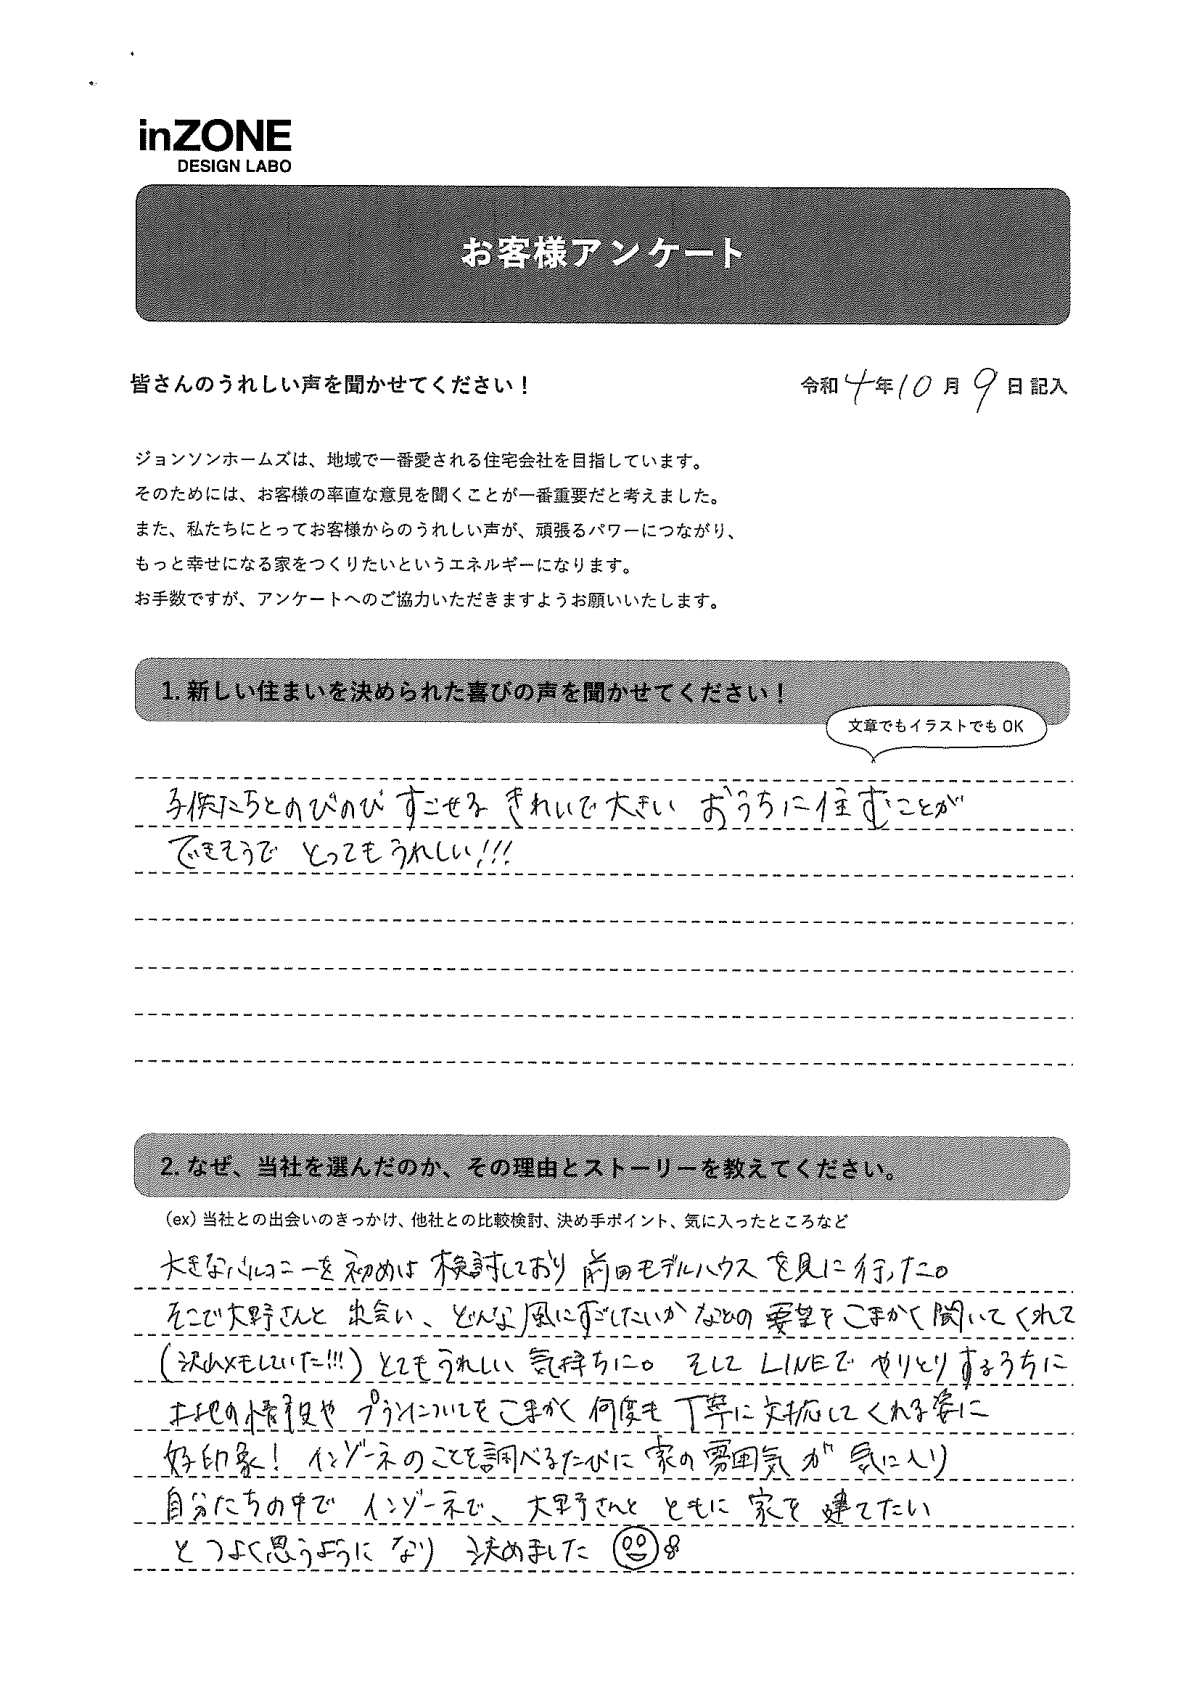 inZONE
DESIGN LABO
お客様アンケート
皆さんのうれしい声を聞かせてください！
令和4年10月9日記入
ジョンソンホームズは、地域で一番愛される住宅会社を目指しています。
そのためには、お客様の率直な意見を聞くことが一番重要だと考えました。
また、私たちにとってお客様からのうれしい声が、頑張るパワーにつながり、
もっと幸せになる家をつくりたいというエネルギーになります。
お手数ですが、アンケートへのご協力いただきますようお願いいたします。
1. 新しい住まいを決められた喜びの声を聞かせてください！
文章でもイラストでも OK
子供たちとのびのび すごせる きれいで大きい おうちに住むことが
できそうで とってもうれしい!!!
2. なぜ、当社を選んだのか、その理由とストーリーを教えてください。
（ex）当社との出会いのきっかけ、他社との比較検討、決め手ポイント、気に入ったところなど
大きなバルコニーを初めは 検討しており 前田モデルハウス を見に行った。
そこで大野さんと 出会い、どんな風にすごしたいか などの 要望を こまかく 聞いて くれて
(沢山メモしていた!!!) とてもうれしい 気持ちに。 そして LINEで やりとり するうちに
土地の情報や プランについてを こまかく 何度も 丁寧に 対応して くれる姿に
好印象! インゾーネのことを調べるたびに 家の 雰囲気 が 気に入り
自分たちの中で インゾーネで、大野さんと ともに 家を 建てたい
と つよく思うように なり 決めました